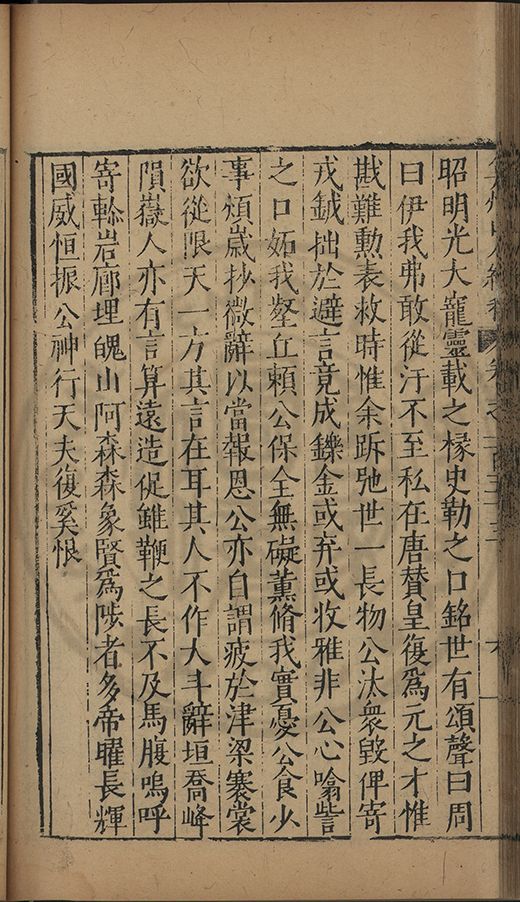 昭明光大寵靈載之椽史勒之口銘世有頌聲曰周
曰伊我弗敢從汙不至私在唐賛皇復爲元之才惟
戡難勳表救時惟余跅弛世一長物公汰衆毀俾寄
戎鉞拙於避言竟成鑠金或弃或收雅非公心噏訾
之口妬我壑丘頼公保全無礙薰脩我實憂公食少
事煩歲抄微辭以當報恩公亦自謂疲於津梁褰裳
欲從限天一方其言在耳其人不作大斗辭垣喬峰
隕嶽人亦有言算遠造促雖鞭之長不及馬腹嗚呼
寄軫岩廊埋魄山阿森森象賢爲陟者多帝曜長輝
國威恒振公神行天夫復奚恨